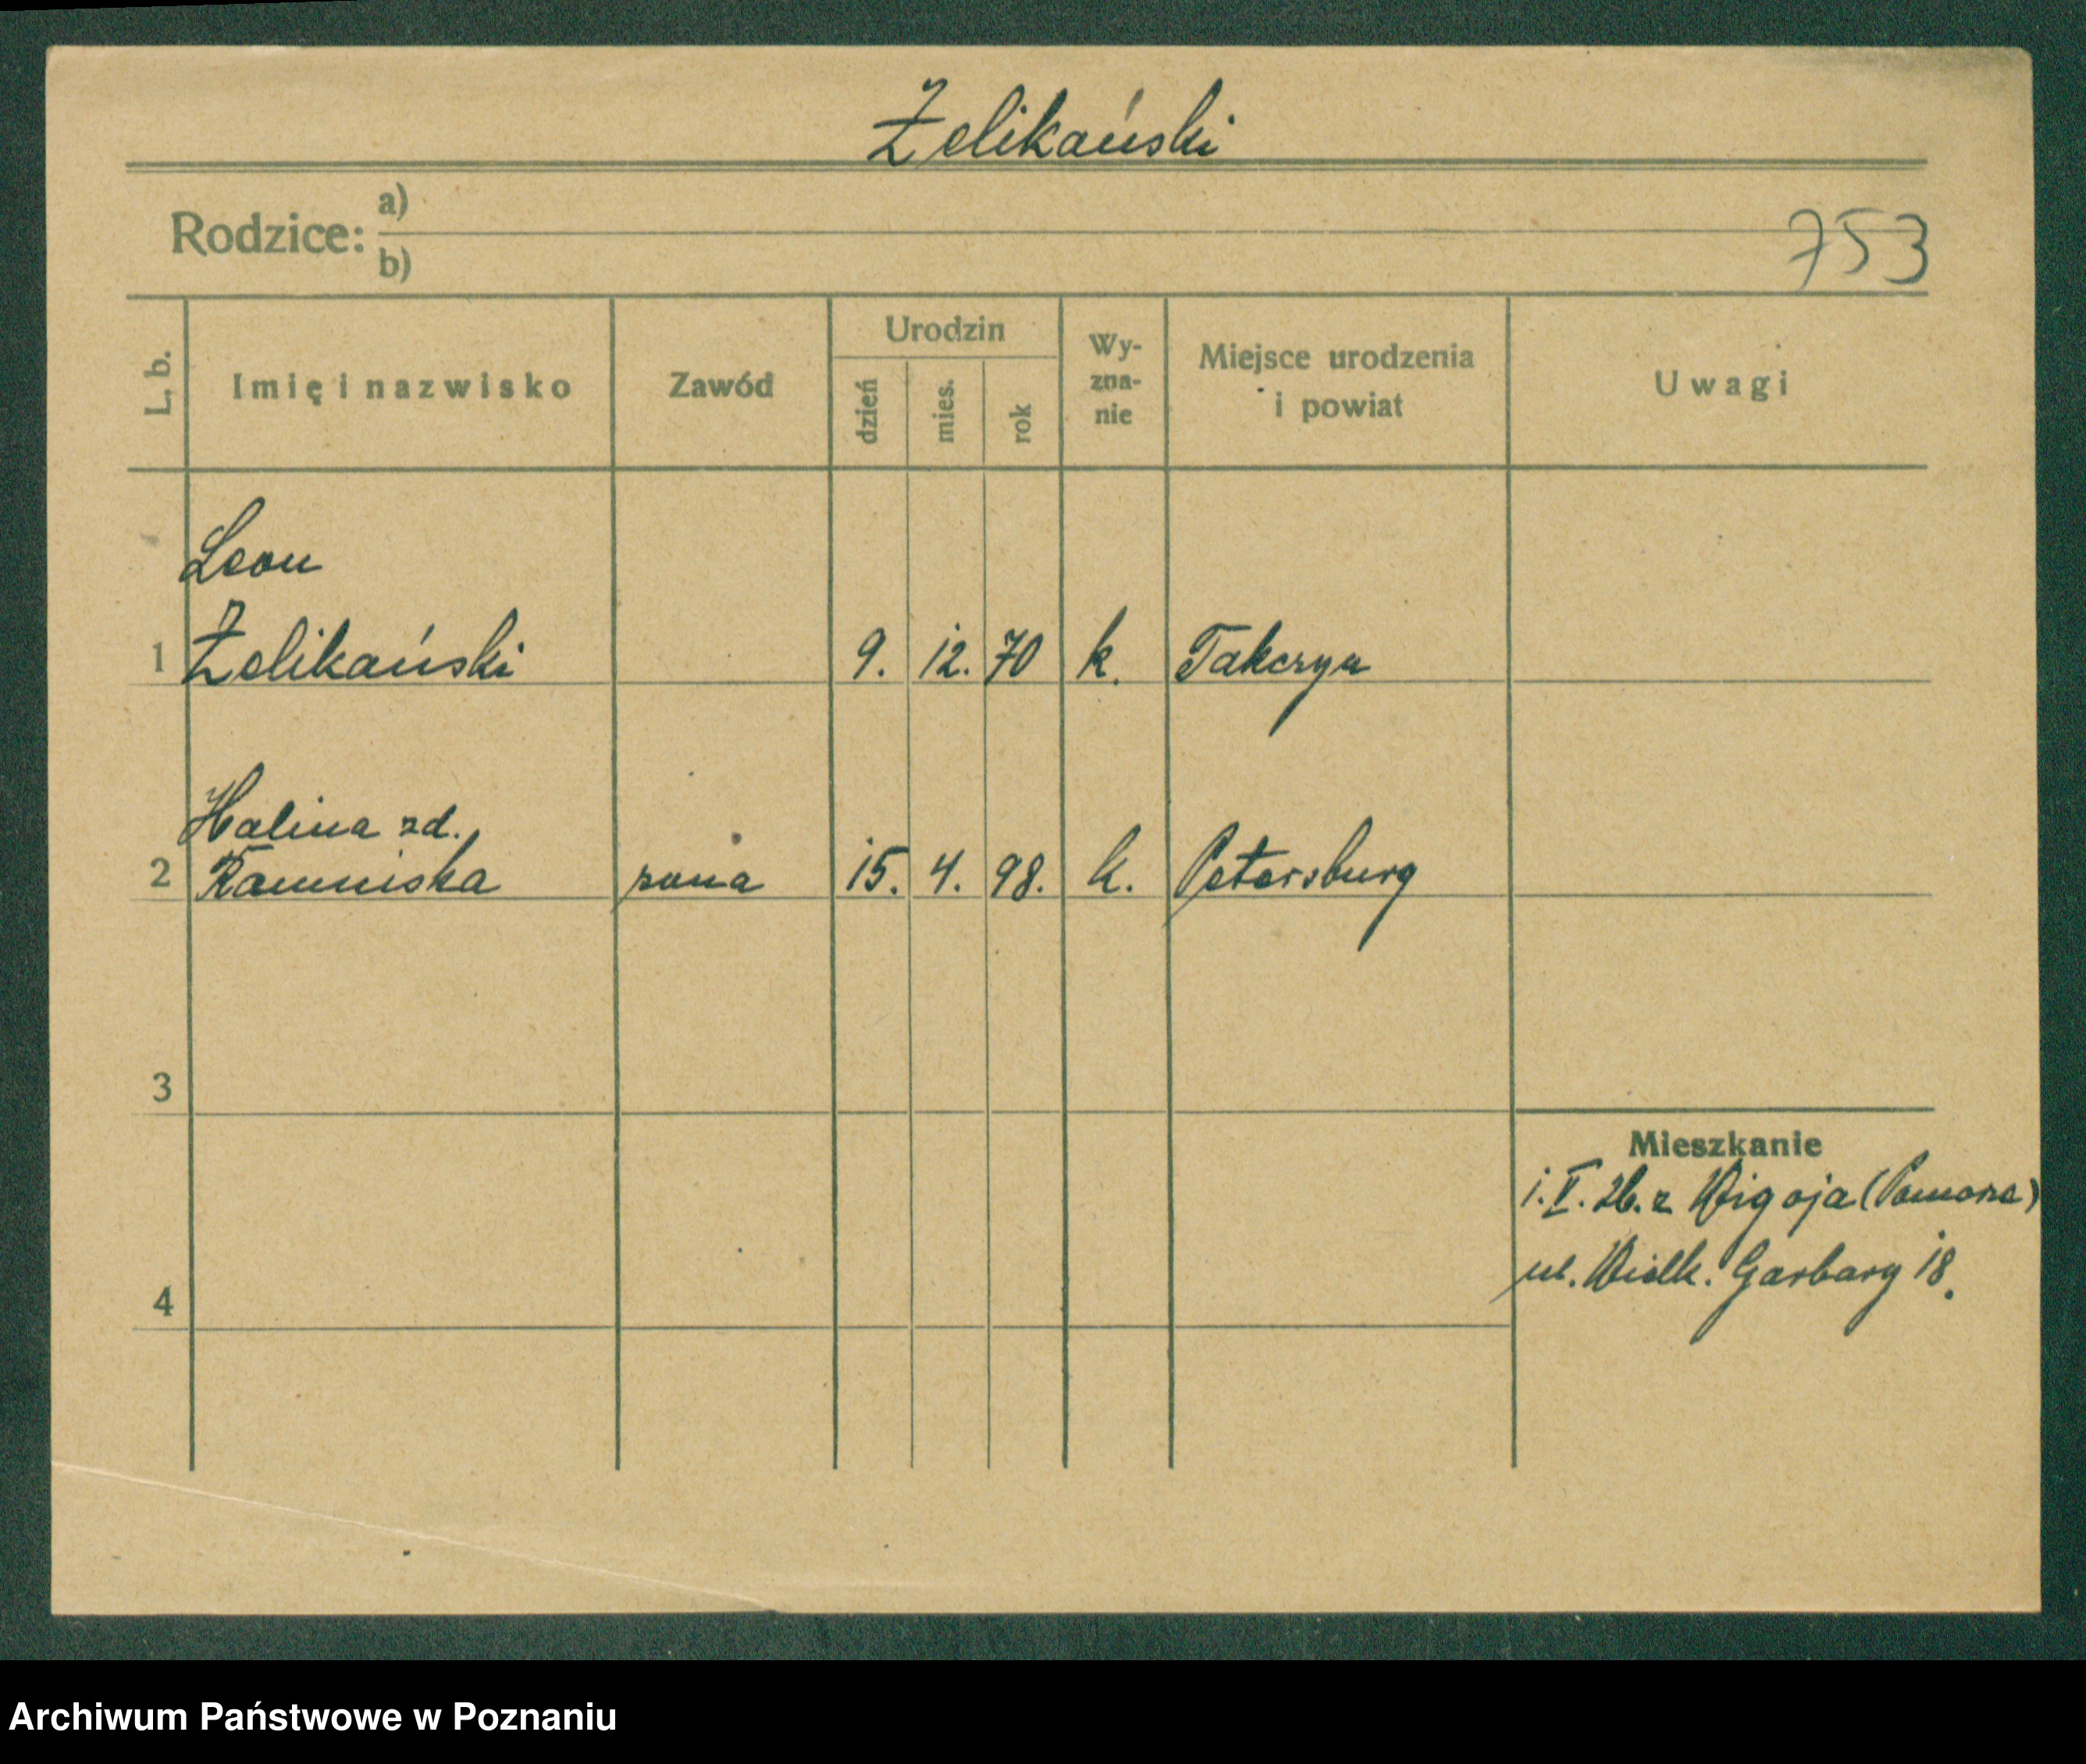 Żelikański
Rodzice: a)
b)
753
L. b. Imię i nazwisko Zawód Urodzin dzień mies. rok Wy-zna-nie Miejsce urodzenia i powiat Uwagi
Leon
1 Żelikański 9. 12. 70 k. Takczyn
Halina zd.
2 Kamińska żona 15. 4. 98. k. Petersburg
3
Mieszkanie
1. V. 26. z (Pomorze)
ul. Wielk. Garbary 18.
4
Archiwum Państwowe w Poznaniu